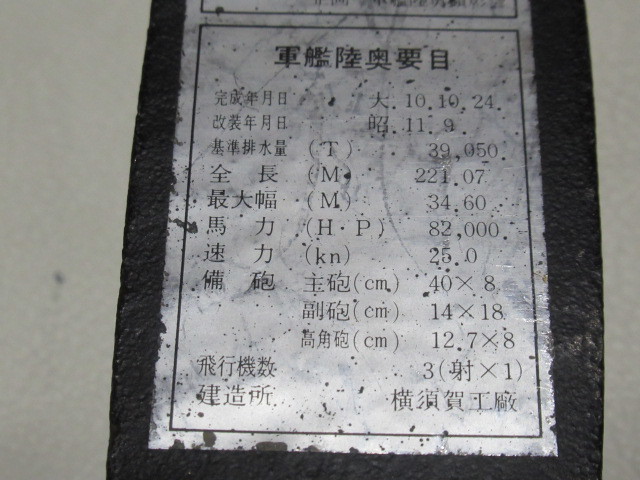 軍艦陸奥要目
完成年月日 大.10.10.24.
改装年月日 昭.11.9.
基準排水量(T) 39,050.
全長(M) 221.07.
最大幅(M) 34.60.
馬力(H・P) 82,000.
速力(kn) 25.0
備砲 主砲(cm) 40×8.
副砲(cm) 14×18
高角砲(cm) 12.7×8
飛行機数 3(射×1)
建造所 横須賀工廠